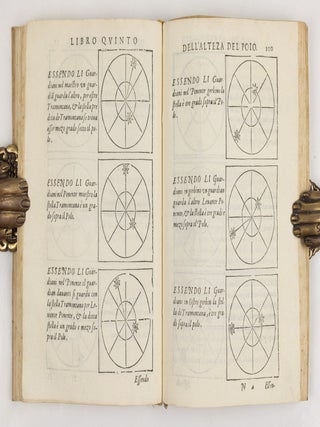 LIBRO QVINTO
ESSENDO LI Guar-
diani nel maestro un guar-
da l'altro, per ostro
Tramontana, & la stella
mezo grado sotto il po
lo.
ESSENDO LI Guar-
diani nel Ponente maestro la
stella Tramontana è un gra
do sopra il Polo.
ESSENDO LI Guar-
diani nel Ponente il guar-
dian dauanti si guarda con
la stella Tramontana per Le-
uante Ponente, & la detta
stella è un grado e mezo so-
pra il polo.
Essendo
DELL'ALTEZA DEL POLO.
ESSENDO LI Guar-
diani nel Ponente gerbino la
stella è tre gradi sopra il Po
lo.
ESSENDO LI Guar-
diani in gerbino un guardian
guarda l'altro Leuante Po-
nente, & la stella è tre gradi e
mezo sopra il Polo.
ESSENDO LI Guar-
diani in gerbin la stel
la di Tramontana, è tre gra
di sopra il polo.
N